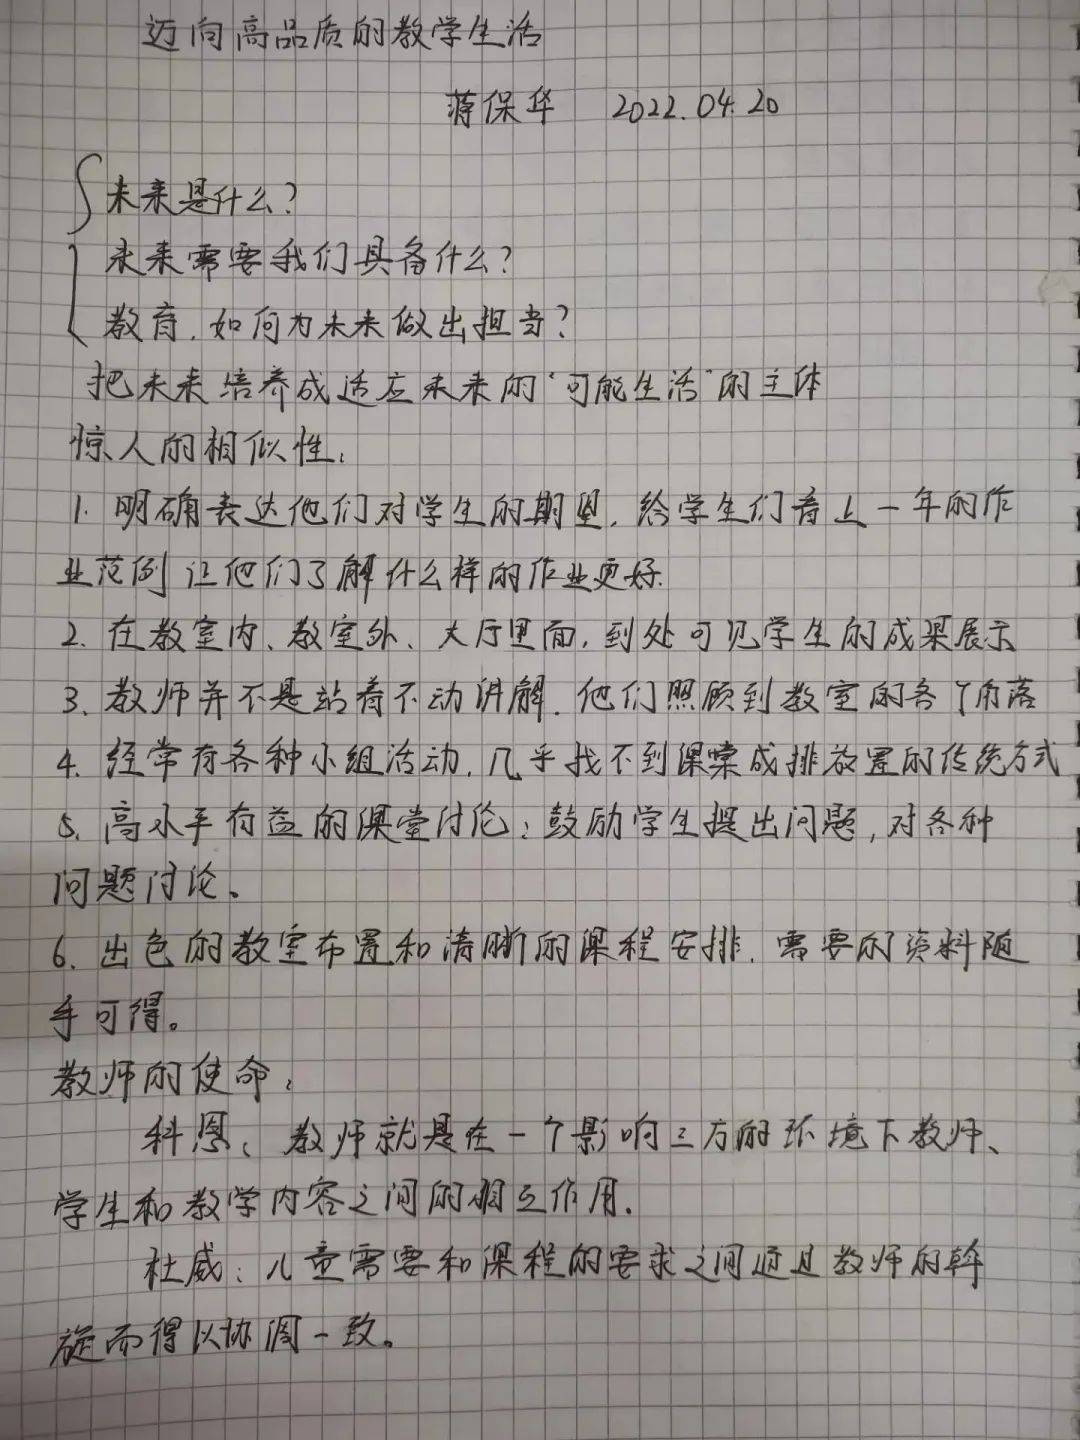 迈向高品质的教学生活
蒋保华 2022.04.20
未来是什么?
未来需要我们具备什么?
教育,如何为未来做出担当?
把未来培养成适应未来的“可能生活”的主体
惊人的相似性:
1. 明确表达他们对学生的期望,给学生们看上一年的作
业范例 让他们了解什么样的作业更好.
2. 在教室内、教室外、大厅里面,到处可见学生的成果展示
3. 教师并不是站着不动讲解.他们照顾到教室的各个角落
4. 经常有各种小组活动,几乎找不到课桌成排放置的传统方式
5. 高水平有益的课堂讨论:鼓励学生提出问题,对各种
问题讨论。
6. 出色的教室布置和清晰的课程安排.需要的资料随
手可得。
教师的使命:
科恩:教师就是在一个影响三方的环境下教师、
学生和教学内容之间的相互作用.
杜威:儿童需要和课程的要求之间通过教师的斡
旋而得以协调一致。